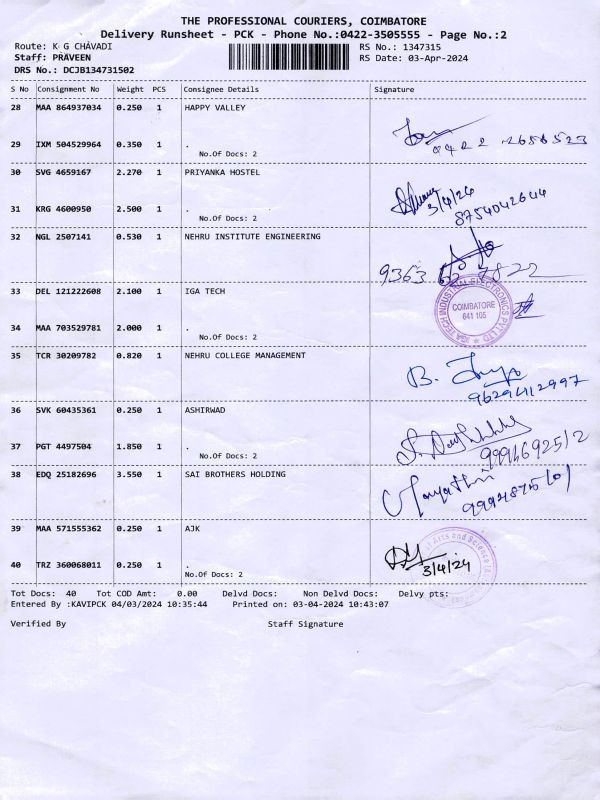 THE PROFESSIONAL COURIERS, COIMBATORE
Delivery Runsheet - PCK - Phone No.:0422-3505555 - Page No.:2
Route: K G CHAVADI
RS No.: 1347315
Staff: PRAVEEN
RS Date: 03-Apr-2024
DRS No.: DCJB134731502
S No Consignment No Weight PCS Consignee Details Signature
28 MAA 864937034 0.250 1 HAPPY VALLEY
29 IXM 504529964 0.350 1 .
No.Of Docs: 2
30 SVG 4659167 2.270 1 PRIYANKA HOSTEL
3/4/24
31 KRG 4600950 2.500 1 .
8754042644
No.Of Docs: 2
32 NGL 2507141 0.530 1 NEHRU INSTITUTE ENGINEERING
9363 62 7822
33 DEL 121222608 2.100 1 IGA TECH
IGA TECH INDUSTRIAL ELECTRONICS PVT LTD
COIMBATORE
641 105
34 MAA 703529781 2.000 1 .
No.Of Docs: 2
35 TCR 30209782 0.820 1 NEHRU COLLEGE MANAGEMENT
B.
9629412997
36 SVK 60435361 0.250 1 ASHIRWAD
37 PGT 4497504 1.850 1 .
No.Of Docs: 2
9991692512
38 EDQ 25182696 3.550 1 SAI BROTHERS HOLDING
39 MAA 571555362 0.250 1 AJK
Arts and Science
40 TRZ 360068011 0.250 1 .
3/4/24
No.Of Docs: 2
Tot Docs: 40 Tot COD Amt: 0.00 Delvd Docs: Non Delvd Docs: Delvy pts:
Entered By :KAVIPCK 04/03/2024 10:35:44 Printed on: 03-04-2024 10:43:07
Verified By Staff Signature